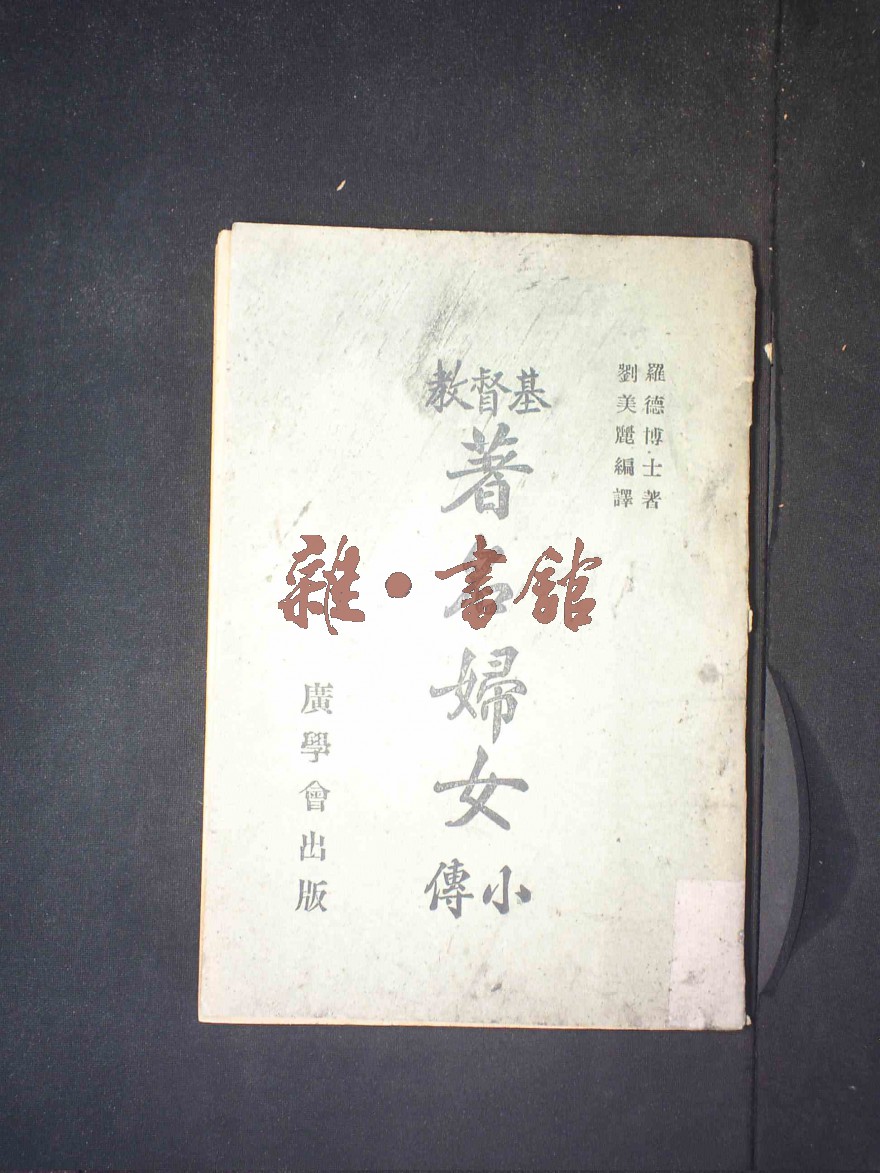 羅德博士著
劉美麗編譯
基督教
著名婦女
小傳
廣學會出版
雜·書館